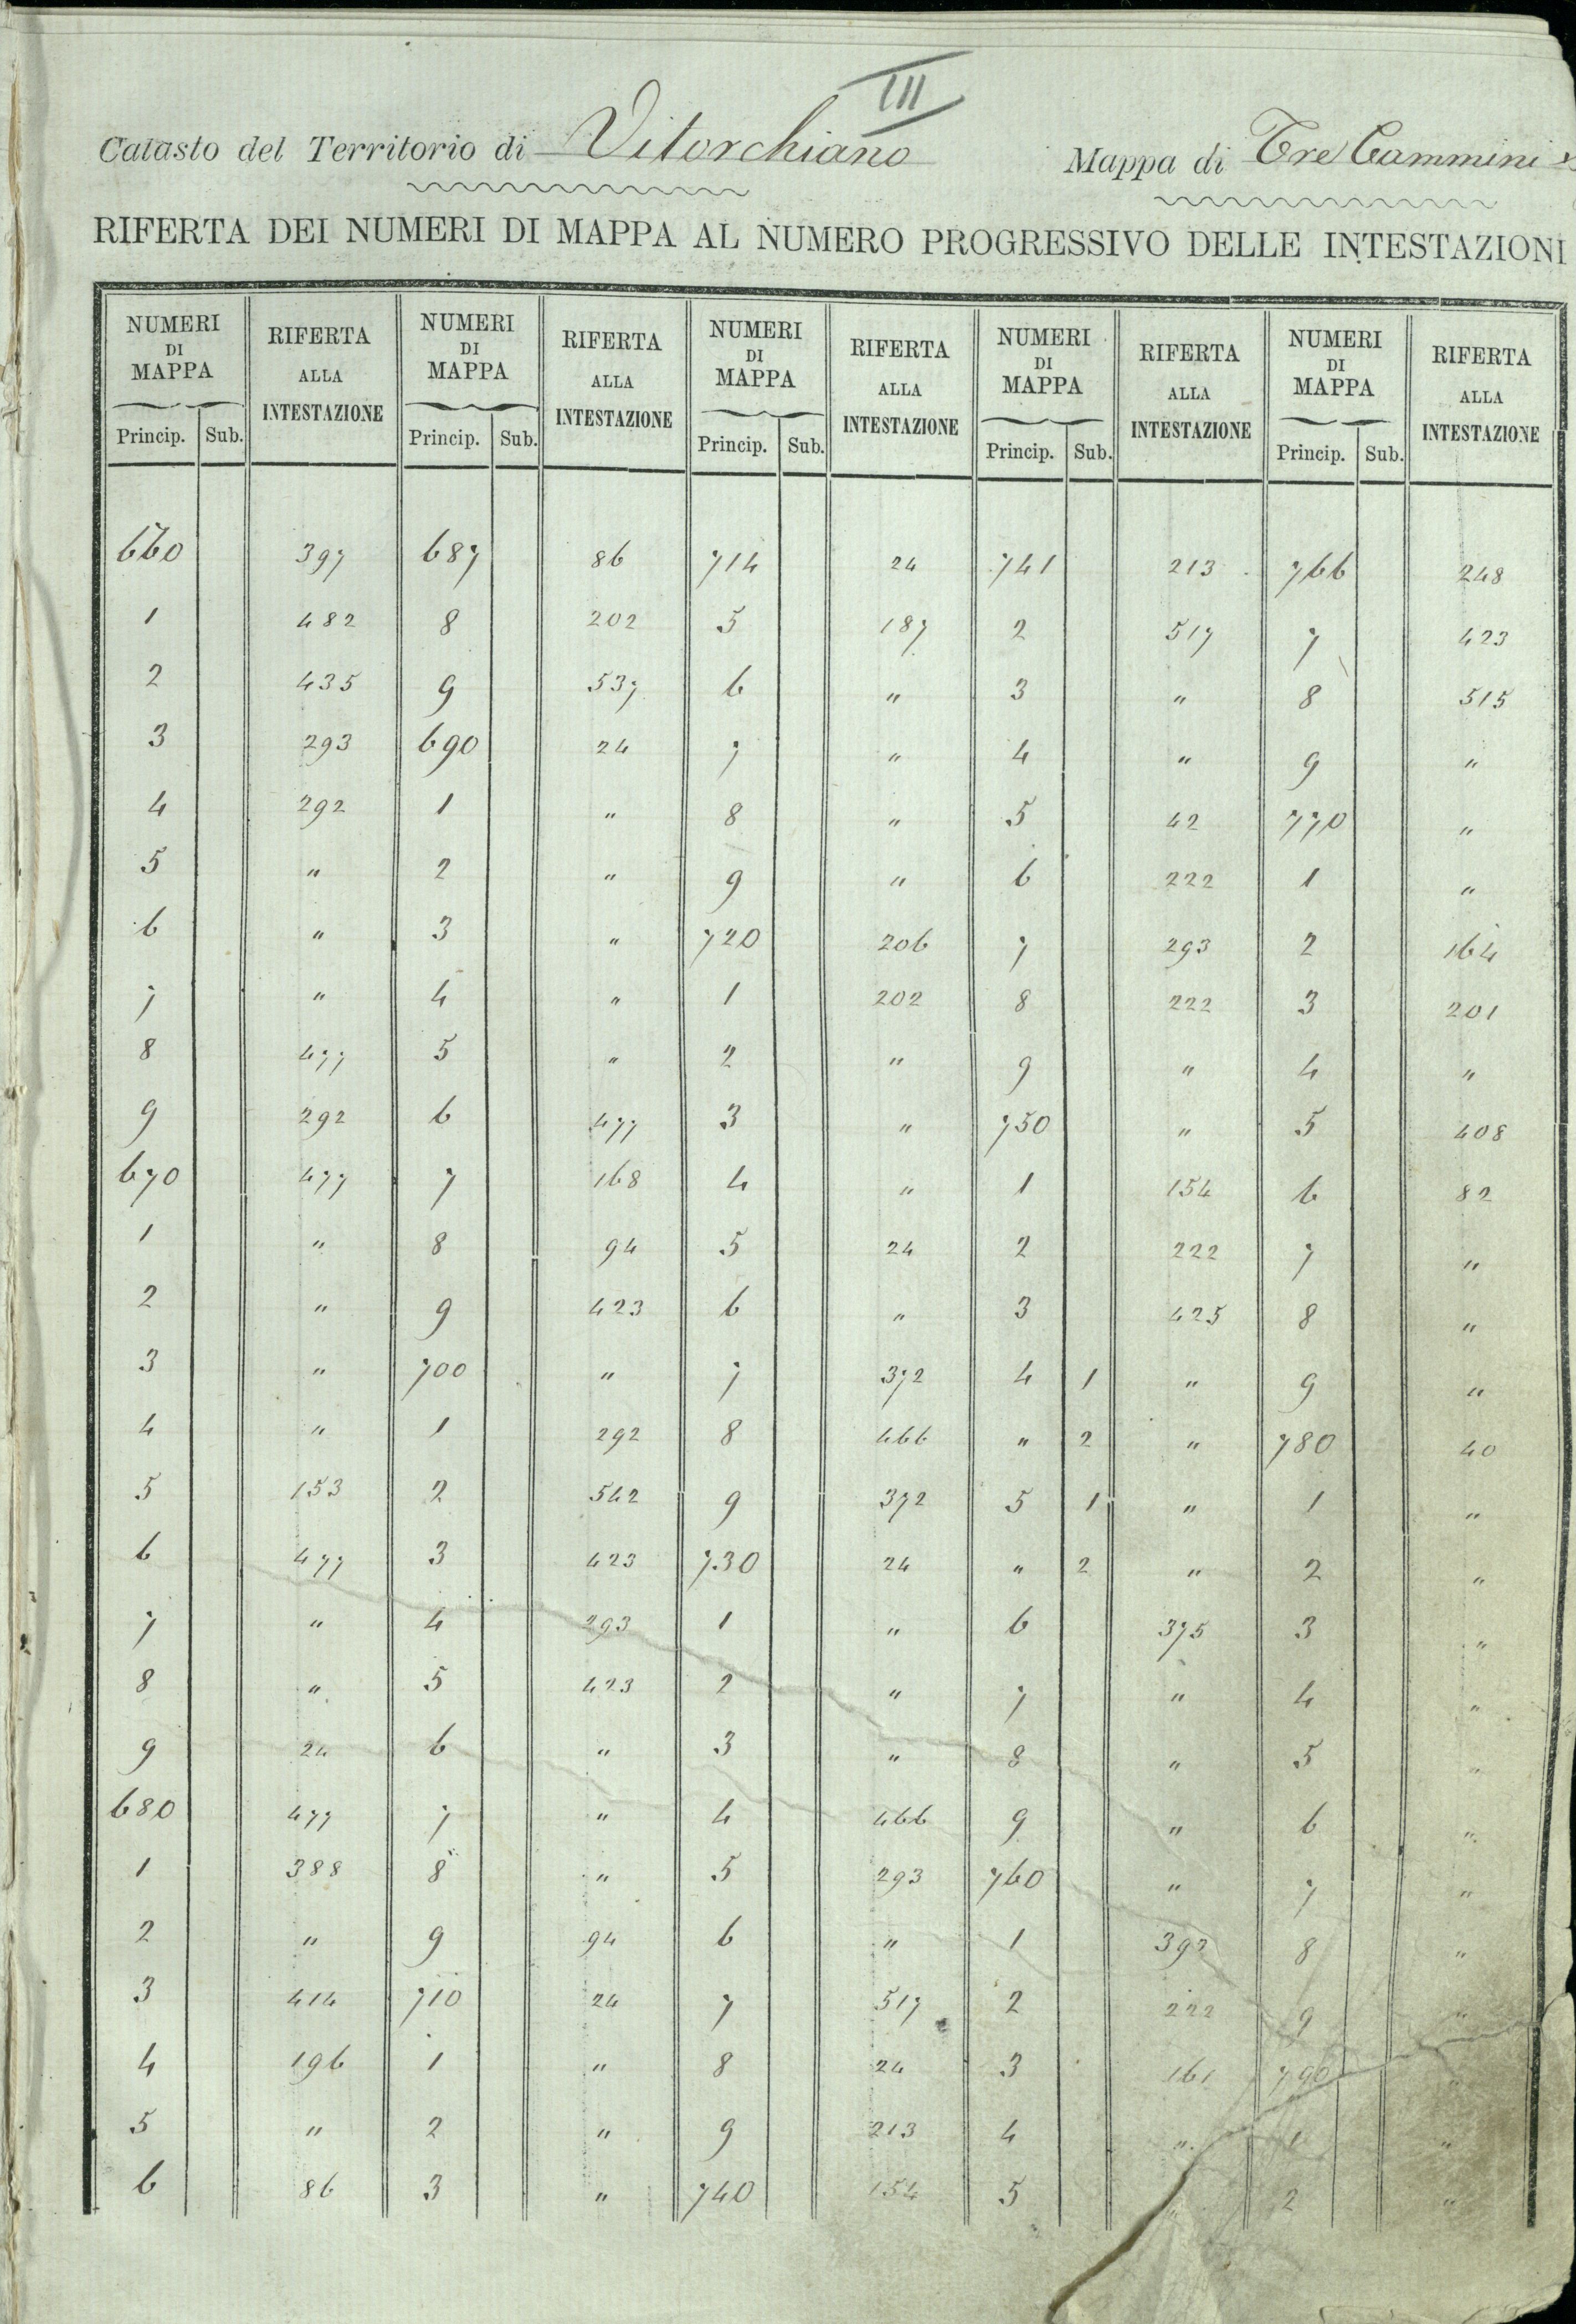 III
Catasto del Territorio di Vitorchiano Mappa di Tre Cammini
RIFERTA DEI NUMERI DI MAPPA AL NUMERO PROGRESSIVO DELLE INTESTAZIONI
NUMERI DI MAPPA RIFERTA ALLA INTESTAZIONE NUMERI DI MAPPA RIFERTA ALLA INTESTAZIONE NUMERI DI MAPPA RIFERTA ALLA INTESTAZIONE NUMERI DI MAPPA RIFERTA ALLA INTESTAZIONE NUMERI DI MAPPA RIFERTA ALLA INTESTAZIONE
Princip. Sub. Princip. Sub. Princip. Sub. Princip. Sub. Princip. Sub.
660 397 687 86 714 24 741 213 766 248
1 482 8 202 5 187 2 517 7 423
2 435 9 537 6 " 3 " 8 515
3 293 690 24 7 " 4 " 9 "
4 292 1 " 8 " 5 42 770 "
5 " 2 " 9 " 6 222 1 "
6 " 3 " 720 206 7 293 2 164
7 " 4 " 1 202 8 222 3 201
8 477 5 " 2 " 9 " 4 "
9 292 6 477 3 " 750 " 5 408
670 477 7 168 4 " 1 154 6 82
1 " 8 94 5 24 2 222 7 "
2 " 9 423 6 " 3 425 8 "
3 " 700 " 7 372 4 1 " 9 "
4 " 1 292 8 466 " 2 " 780 40
5 153 2 542 9 372 5 1 " 1 "
6 477 3 423 730 24 " 2 " 2 "
7 " 4 293 1 " 6 375 3 "
8 " 5 423 2 " 7 " 4 "
9 24 6 " 3 " 8 " 5 "
680 477 7 " 4 466 9 " 6 "
1 388 8 " 5 293 760 " 7 "
2 " 9 94 6 " 1 392 8 "
3 414 710 24 7 517 2 222 9 "
4 196 1 " 8 24 3 161 790 "
5 " 2 " 9 213 4 " 1 "
6 86 3 " 740 154 5 " 2 "